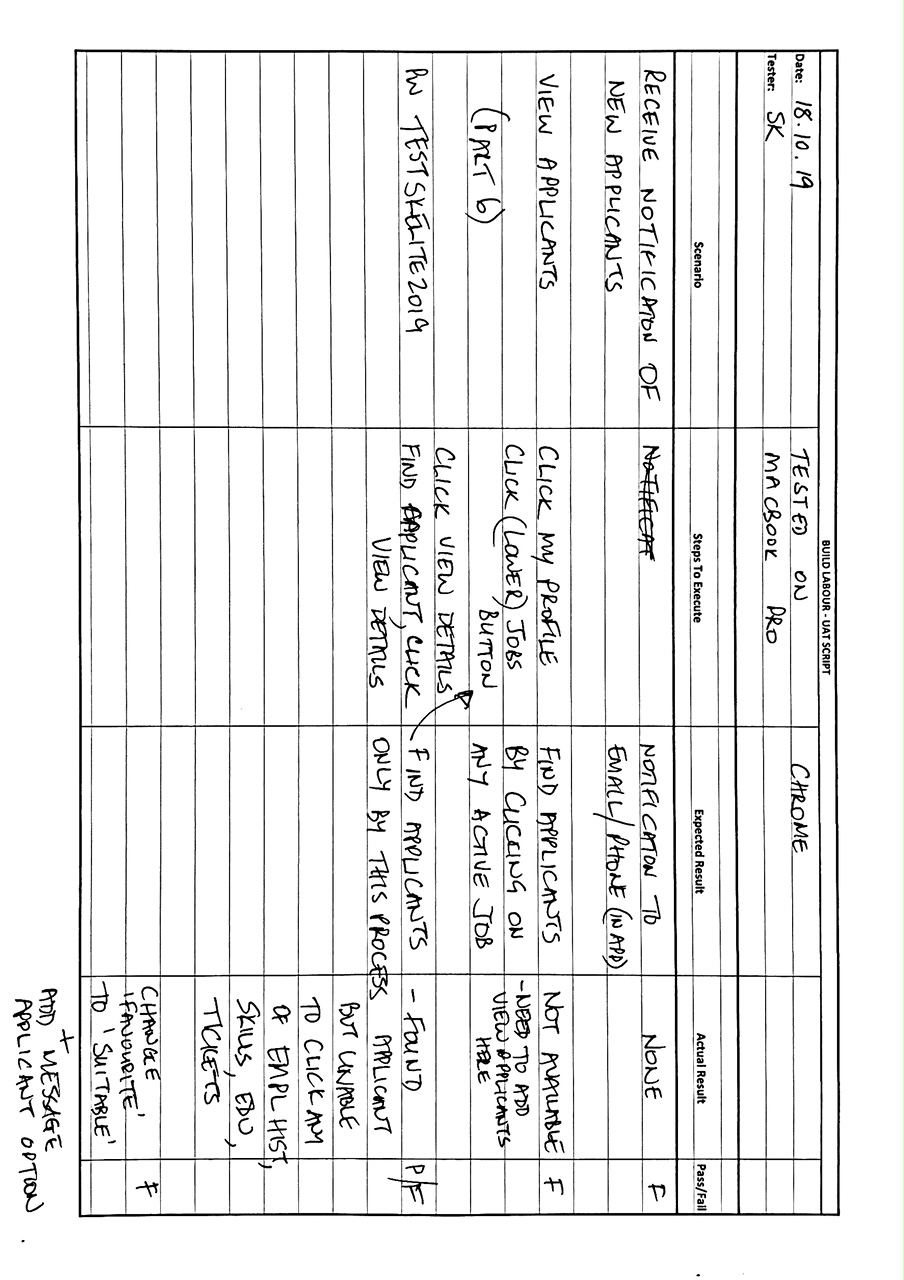 BUILD LABOUR - UAT SCRIPT
Date: 18.10.19 TESTED ON CHROME
Tester: SK MACBOOK PRO
Scenario Steps To Execute Expected Result Actual Result Pass/Fail
RECEIVE NOTIFICATON OF
NEW APPLICANTS
NOTIFICAT
NOTIFICATON TO
EMAIL/PHONE (IN APP)
NONE
F
VIEW APPLICANTS
(PART 6)
CLICK MY PROFILE
CLICK (LOWER) JOBS
BUTTON
FIND APPLICANTS
BY CLICCING ON
ANY ACTIVE JOB
NOT AVAILABLE
- NEED TO ADD
VIEW APPLICANTS
HERE
F
PW TESTSKELITE2019
CLICK VIEW DETAILS
FIND APPLICANT, CLICK
VIEW DETAILS
FIND APPLICANTS
ONLY BY THIS PROCESS
- FOUND
APPLICANT
BUT UNABLE
TO CLICK ANY
OF EMPL HIST,
SKILLS, EDU,
TICKETS
P/F
CHANGE
'FAVOURITE'
TO 'SUITABLE'
F
+
ADD MESSAGE
APPLICANT OPTION